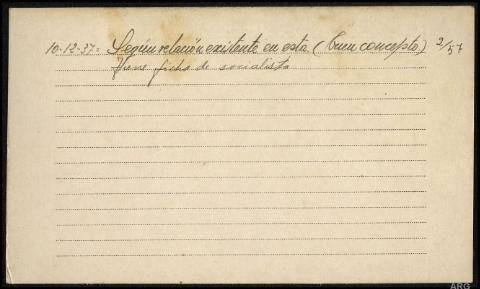 10-12-37= Según relación existente en esta (buen concepto) 2/57
Tiene ficha de socialista
ARG